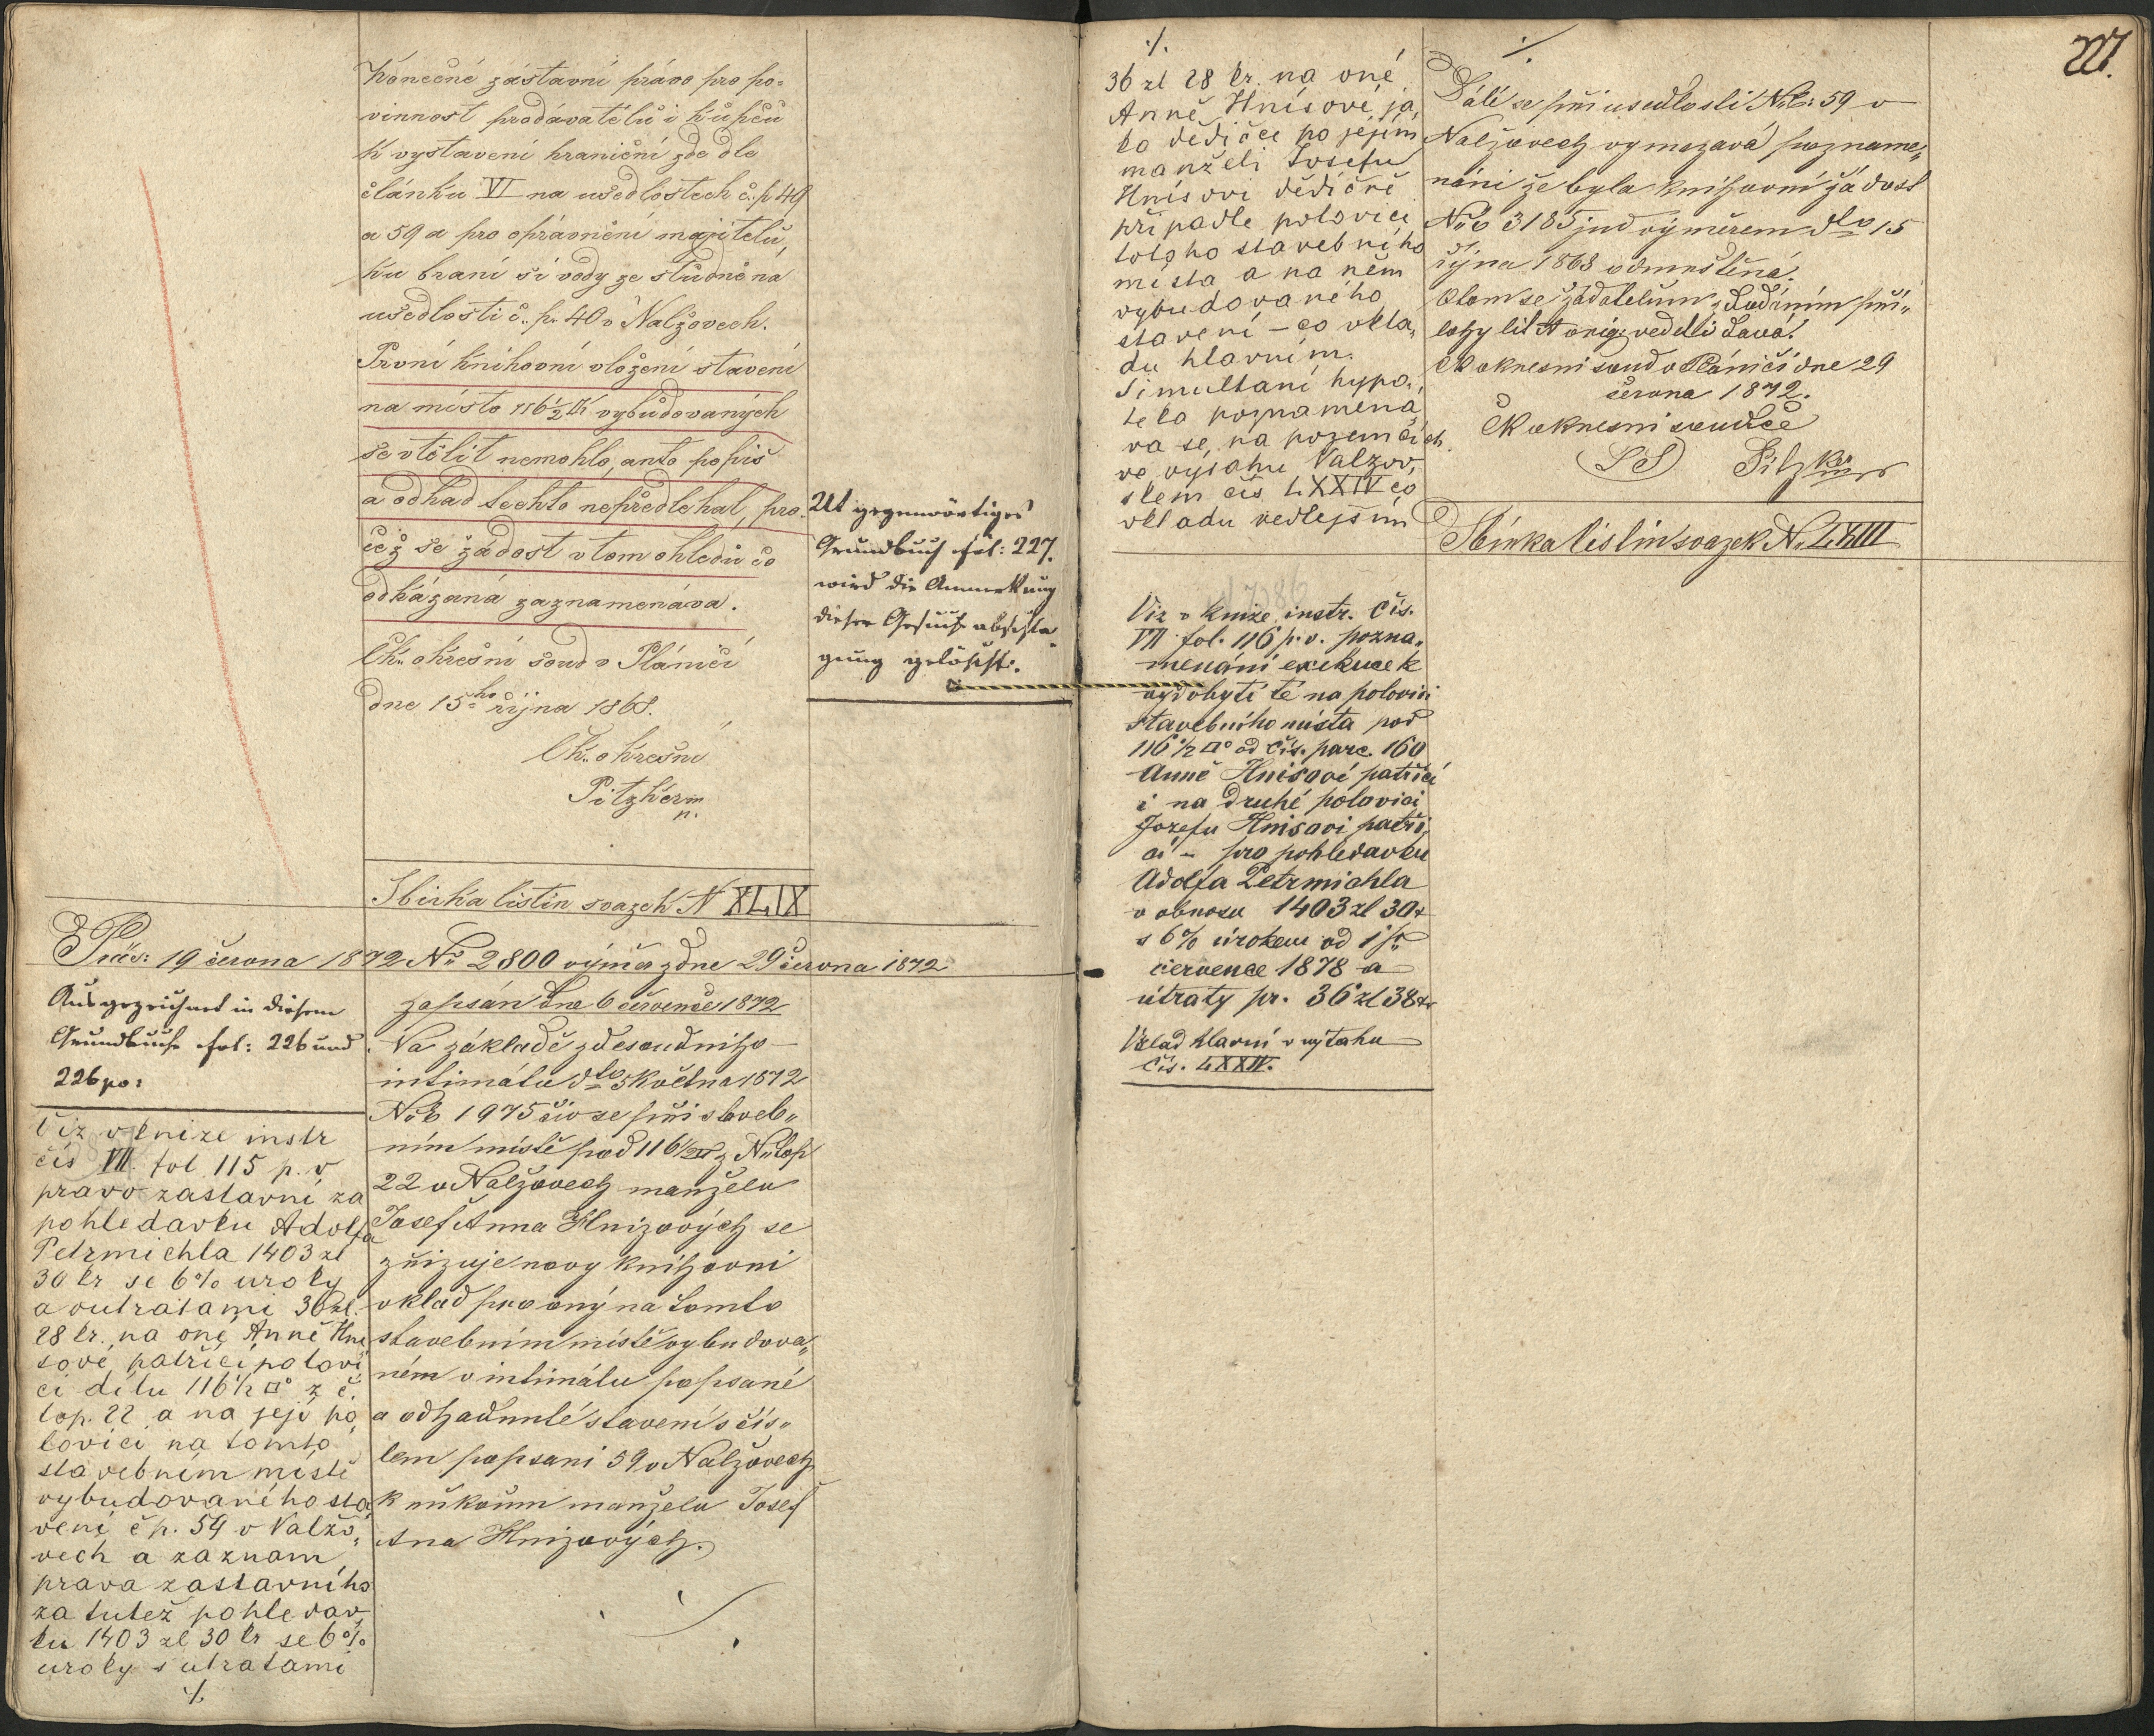 Konečné zástavní právo pro po-
vinnost prodávatelů i kupců
k vystavení hraniční zde dle
článku VI na usedlostech č. p 49
a 59 a pro oprávnění majitelů,
ku braní si vody ze studně na
usedlosti č. p. 40 v Nalžovech.
První knihovní vložení stavení
na místo 116½ vybudovaných
se vtělit nemohlo, anto popis
a odhad techto nepředlehal, pro-
čež se žádost v tom ohledu co
odkázaná zaznamenáva.
Ck. okresní soud v Plánici
dne 15ho října 1868.
Ck. okresní
Pitzker m
p.
Sbirka listin svazek N XLIX
Ut gegenwärtiges
Grundbuch fol: 227.
wird die Anmerkung
dieser Gesuchs abschla-
gung gelöscht.
Präs: 19 června 1872 No 2800 výměr zdne 29 června 1872
Ausgezeichnet in diesem
Grundbuche fol: 226 und
226 po:
Viz v knize instr
čís VII. fol 115 p. v
pravo zastavní za
pohledavku Adolfa
Petrmichla 1403 zl
30 kr se 6% uroky
a outratami 36 zl.
28 kr. na oné Anně Hni
sové patřící polovi
ci dílu 116½ □° z č.
top. 22 a na její po
lovici na tomto
stavebním místě
vybudovaného sta
vení č p. 59 v Nalžo-
vech a zaznam
prava zastavního
za tutéž pohledav
ku 1403 zl 30 kr se 6%
uroky s utratami
./.
zapsán dne 6 července 1872
Na základě zdesoudního
intimátu dto 5 května 1872
Nob 1975 čio se při staveb-
ním místě pod 116½ z No top
22 v Nalžovech manželu
Josef Anna Hnizových se
zřizuje novy knihovni
vklad pro oný na tomto
stavebním místě vybudova-
ném v intimátu popsané
a odhadnuté stavení s čís-
lem popsani 59 v Nalžovech
k rukoum manželu Josef
Ana Hnizových.
./.
36 zl 28 kr. na oné
Anně Hnísové, ja
ko dědičce po jejím
manželi Josefu
Hnísovi dědičně
připadle polovici
tohoho stavebního
místa a na něm
vybudovaného
stavení – co vkla-
du hlavním.
Simultaní hypo-
teka poznamená
va se, na pozemcích
ve výtahu Nalžov-
skem čís LXXIV co
vkladu vedlejším
Viz v knize instr. čís.
VII fol. 116 p. v. pozna-
menání exekuce k
vydobytí té na polovici
stavebního místa pod
116½ □° od čís. parc. 160
Anně Hnisové patřící
i na druhé polovici
Jozefu Hnisovi patří
cí – pro pohledavku
Adolfa Petrmichla
v obnosu 1403 zl 30 kr
s 6% úrokem od 1
července 1878 a
útraty pr. 36 zl 38 kr
Vklad hlavní v výtahu
čís. LXXIV.
./.
227.
Dálé se při usedlosti No. 59 v
Nalžovech vymazavá pozname-
nání že byla knihovní žádost
Nob 3185 jud výměrem dto 15
října 1868 odmrštěná.
O tom se žadatelům s vadiním pří-
lohy lit A orig. vedelí davá.
Ck okresni soud v Plánici dne 29
června 1872.
Ck okresni soudce
LS Pitzker mp
Sbírka listin svazek No LXIII